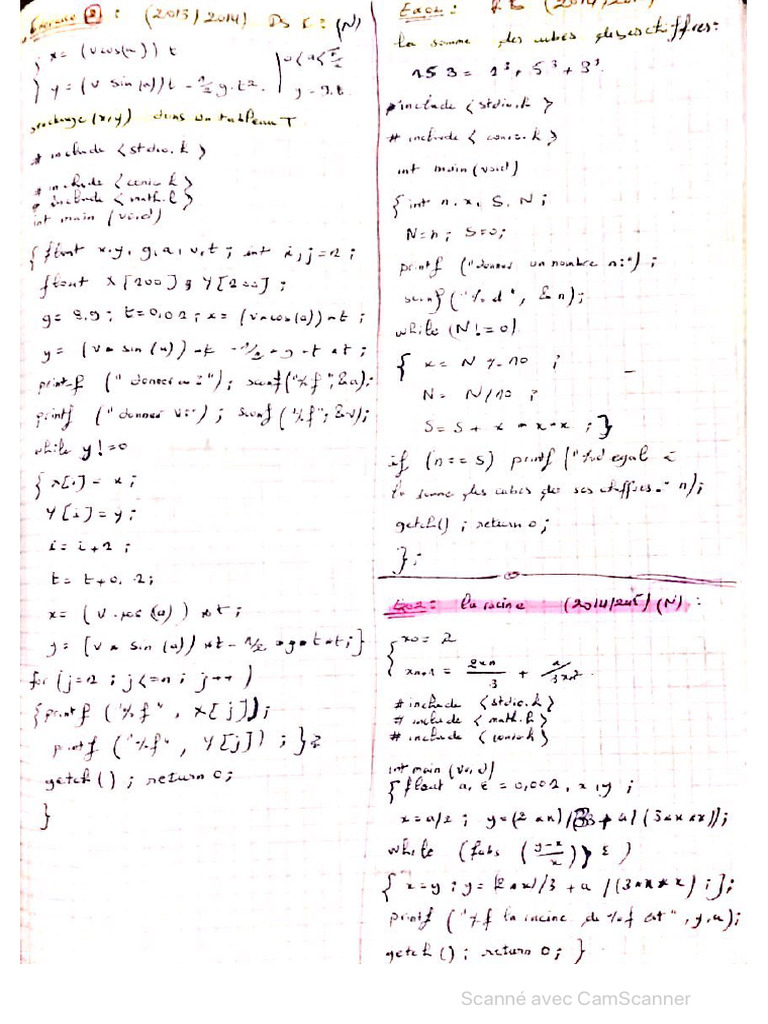 Exercice 2 : (2013/2014) Ds (N)
x = (v cos(a)) t
0 < a < π/2
y = (v sin(a)) t - 1/2 g.t2.
stockage (x,y) dans un tableau T.
# include <stdio.h>
# include <conio.h>
# include <math.h>
int main (void)
{ float x,y, g,a,v,t ; int i,j=1 ;
float X[200] , Y[200] ;
g= 9,9 ; t=0,01 ; x= (v*cos(a))*t ;
y= (v* sin (a)) *t -1/2 *g*t*t ;
printf ("donner a:"); scanf("%f",&a);
printf ("donner v:"); scanf ("%f",&v);
while y!=0
{ X[i]= x ;
Y[i]=y ;
i= i+1 ;
t= t+0,1 ;
x= (v*cos(a)) *t ;
y= (v* sin (a)) *t-1/2 *g*t*t; }
for (j=1 ; j<=n ; j++)
{printf ("%f", X[j]);
printf ("%f", Y[j]) ; }
getch() ; return 0;
}
la somme des cubes de ses chiffres:
153 = 1³+5³+3³
# include <stdio.h>
# include < conio.h>
int main (void)
{ int n,x, S, N ;
N=n ; S=0;
printf ("donner un nombre n:") ;
scanf("%d", &n);
while (N!=0)
{ x= N % 10 ;
N= N/10 ;
S= S+ x*x*x ; }
if (n==S) printf ("%d egal à
la somme des cubes de ses chiffres." n);
getch() ; return 0 ;
};
Exo2: la racine (2014/2015) (N) :
x0= 2
xn+1 = 2xn/3 + a/3xn²
# include <stdio.h>
# include <math.h>
# include <conio.h>
int main (void)
{ float a, ε = 0,001, x,y ;
x=a/2 ; y=(2*x)/3 + a/(3*x*x);
while (fabs (y-x/x) > ε)
{ x=y ; y=(2*x)/3 + a /(3*x*x) ; };
printf ("%f la racine de %f est" , y,a);
getch() ; return 0; }
Scanné avec CamScanner